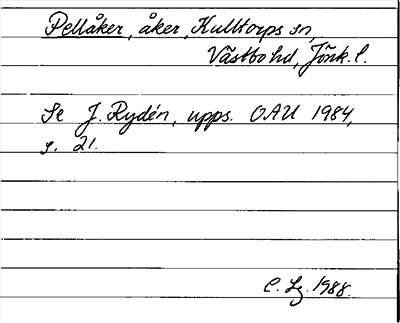 Pellåker, åker, Kulltorps sn,
Västbo hd, Jönk. l.
Se J. Rydén, upps. OAU 1984,
s. 21.
C. Lz. 1988.